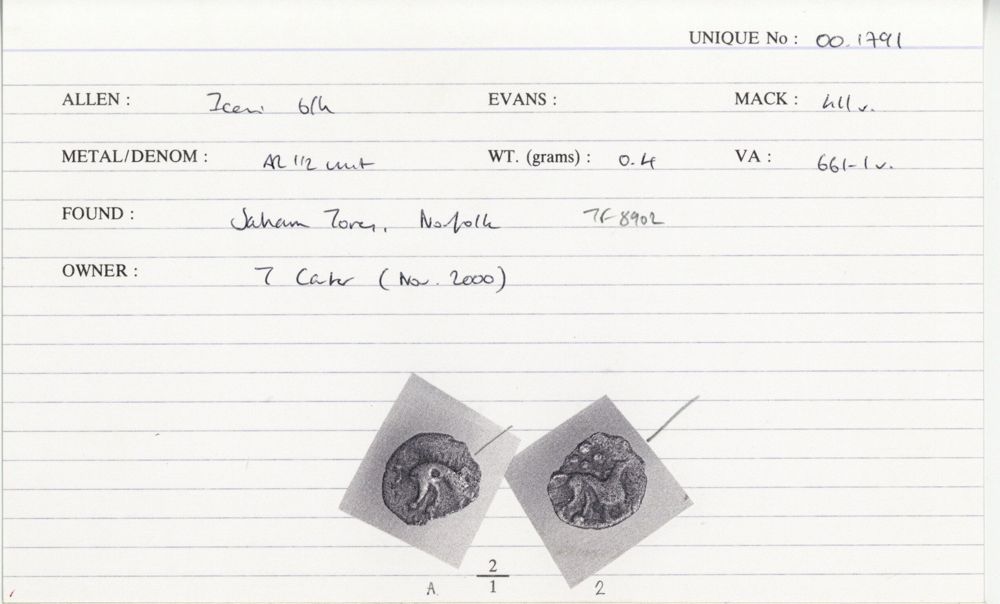 UNIQUE No : 00.1791
ALLEN : Iceni 6/h EVANS : MACK : 411 v.
METAL/DENOM : AR 1/2 unit WT. (grams) : 0.4 VA : 661-1 v.
FOUND : Saham Toney, Norfolk TF 8902
OWNER : T Carter (Nov. 2000)
2
A 1 2